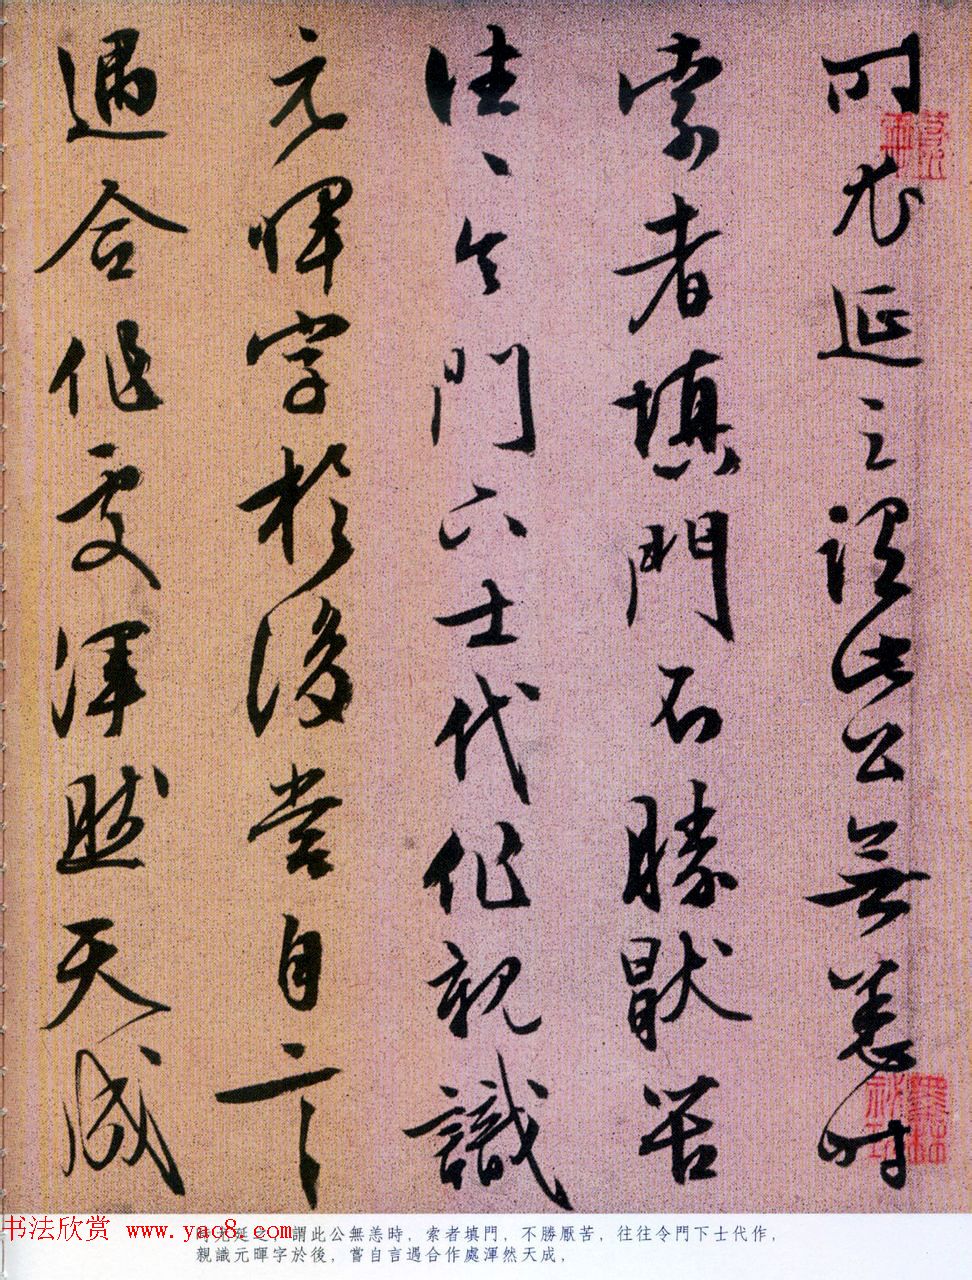 時尤延之謂此公無恙時
索者填門不勝厭苦
往々令門下士代作親識
元暉字於後嘗自言
遇合作處渾然天成
書法欣赏 www.yac8.com
謂此公無恙時，索者填門，不勝厭苦，往往令門下士代作，
親識元暉字於後，嘗自言遇合作處渾然天成，